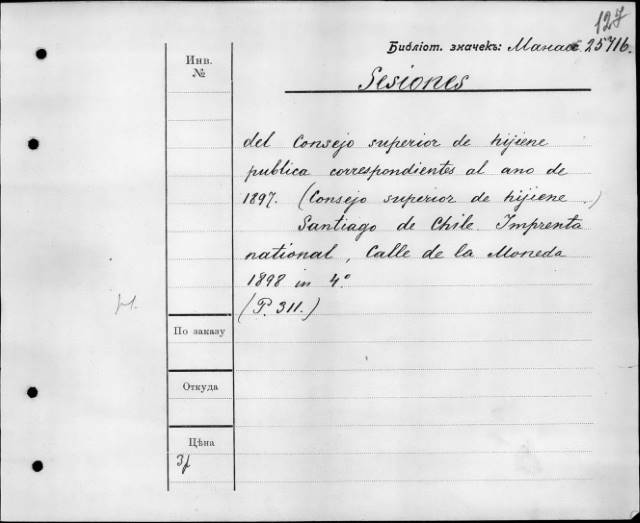 127
Библіот. значекъ: 25716.
Инв.
№
Sesiones
del Consejo superior de hijiene
publica correspondientes al ano de
1897. (Consejo superior de hijiene .)
Santiago de Chile. Imprenta
national, Calle de la Moneda
1898 in 4.°
(P. 311.)
По заказу
Откуда
Цѣна